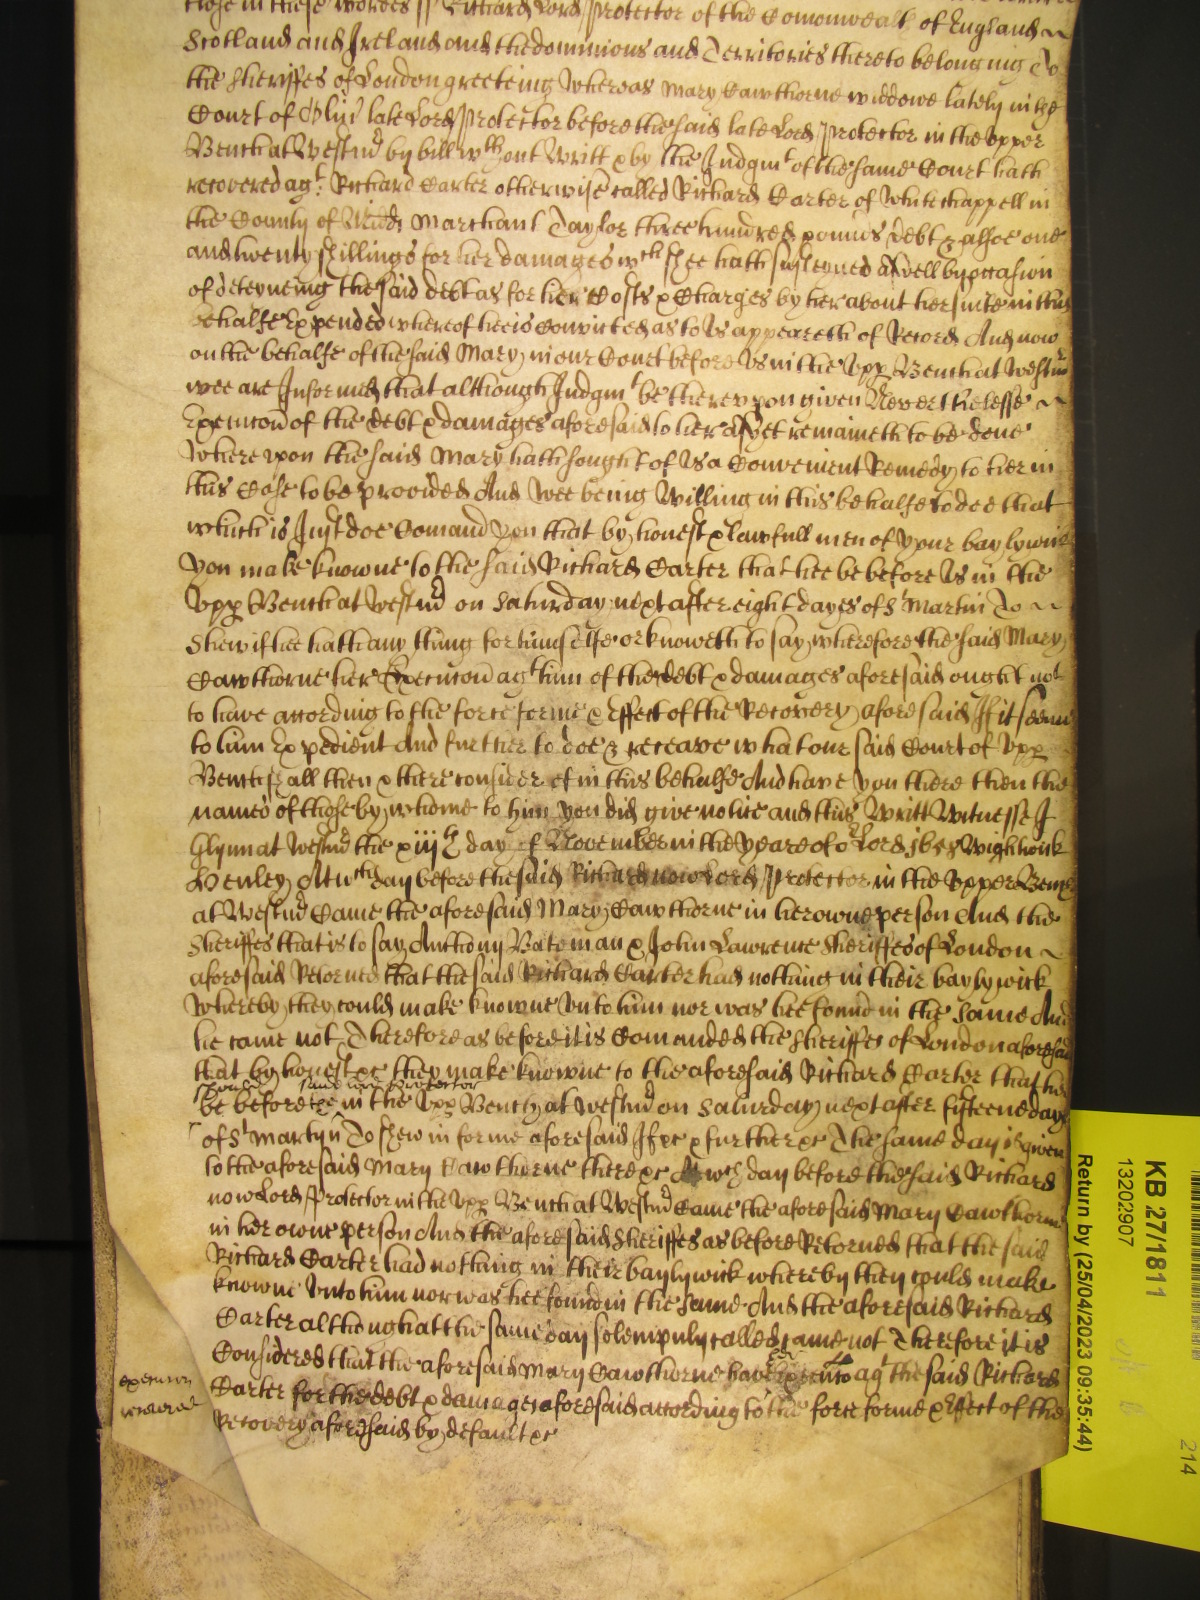 those in these wordes ss Richard Lord Protector of the Comonwealth of England
Scotland and Ireland and the dominions and Territories thereto belonging To
the Sheriffes of London greeteing Whereas Mary Cawthorne widdowe lately in the
Court of Oliv late Lord Protector before the said late Lord Protector in the Upper
Bench at Westmr by bill wthout Writt & by the Judgmt of the same Court hath
recovered agt Richard Carter otherwise called Richard Carter of Whitechappell in
the County of Midd Marchant Taylor three hundred pounds debt & alsoe one
and twenty shillings for her damages wch shee hath susteyned aswell by occasion
of deteyneing the said debt as for her Costs & Charges by her about her suite in this
behalfe Expended whereof hee is Convicted as to Us appeareth of Record And now
on the behalfe of the said Mary in our Court before Us in the Upp Bench at Westmr
wee are Informed that although Judgmt be thereupon given Neverthelesse
Execucon of the debt & damages aforesaid to her as yet remaineth to be done
Whereupon the said Mary hath sought of Us a Convenient Remedy to her in
this Case to be provided And Wee being Willing in this behalfe to doe that
which is Just doe Comand you that by honest & lawfull men of your baylywick
you make knowne to the said Richard Carter that hee be before Us in the
Upp Bench at Westmr on Saturday next after eight dayes of St Martin To
Shew if hee hath any thing for himselfe or knoweth to say wherefore the said Mary
Cawthorne her Execucon agt him of the debt & damages aforesaid ought not
to have according to the force forme & Effect of the Recovery aforesaid If it seeme
to him Expedient And further to doe & receave what our said Court of Upp
Bench shall then & there consider of in this behalfe And have you there then the
names of those by whome to him you did give notice and this Writt Witnesse J
Glynn at Westmr the xiijth day of November in the yeare of or Lord 1658 Wightwick
Henley At wch day before the said Richard now Lord Protector in the Upper Bench
at Westmr Came the aforesaid Mary Cawthorne in her owne person And the
Sheriffes that is to say Anthony Bateman & John Lawrence Sheriffes of London
aforesaid Retorned that the said Richard Carter had nothing in their baylywick
Whereby they could make knowne unto him nor was hee found in the same And
he came not Therefore as before it is Comanded the Sheriffes of London aforesaid
that by honest &c they make knowne to the aforesaid Richard Carter that he
be before the said now Protector in the Upp Bench at Westmr on Saturday next after fifteene dayes
of St Martyn To shew in forme aforesaid If &c & further &c The same day is given
to the aforesaid Mary Cawthorne there &c At wch day before the said Richard
now Lord Protector in the Upp Bench at Westmr Came the aforesaid Mary Cawthorne
in her owne person And the aforesaid Sheriffes as before Retorned that the said
Richard Carter had nothing in their baylywick whereby they could make
knowne unto him nor was hee found in the same And the aforesaid Richard
Carter although at the same day solempnly called came not Therefore it is
Considered that the aforesaid Mary Cawthorne have Execucon agt the said Richard
Carter for the debt & damages aforesaid according to the force forme & Effect of the
Recovery aforesaid by default &c
execucon
KB 27/1811
13202907
Return by (25/04/2023 09:35:44)
214